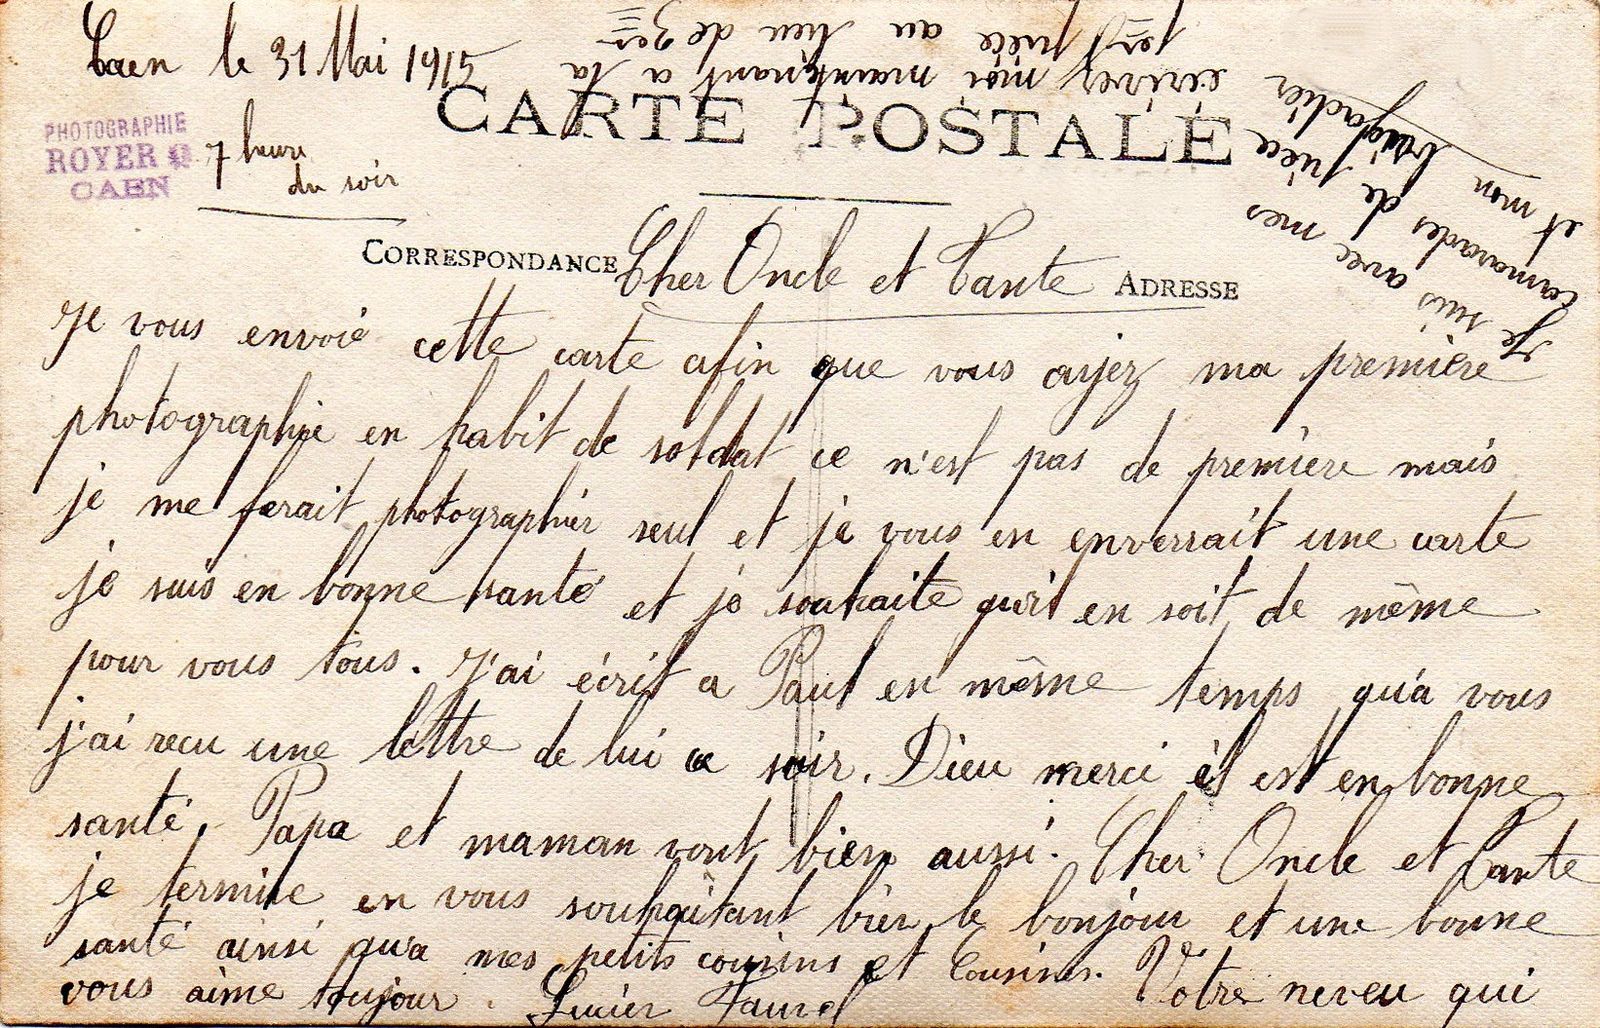 Caen le 31 Mai 1915
7 heure
du soir
PHOTOGRAPHIE
ROYER
CAEN
CARTE POSTALE
CORRESPONDANCE
ADRESSE
Cher Oncle et Tante
Je vous envoie cette carte afin que vous ayez ma première
photographie en habit de soldat ce n'est pas de première mais
je me ferait photographier seul et je vous en enverrait une carte
je suis en bonne santé et je souhaite qu'il en soit de même
pour vous tous. J'ai écrit a Paul en même temps qu'a vous
j'ai recu une lettre de lui ce soir. Dieu merci il est en bonne
santé, Papa et maman vont bien aussi. Cher Oncle et Tante
je termine en vous souhaitant bien le bonjour et une bonne
santé ainsi qu'a mes petits cousins et Cousines. Votre neveu qui
vous aime toujour. Lucien
Je suis avec mes
camarades de pièce
et mon brigadier
écrivez moi maintenant a la
1er pièce au lieu de 3em